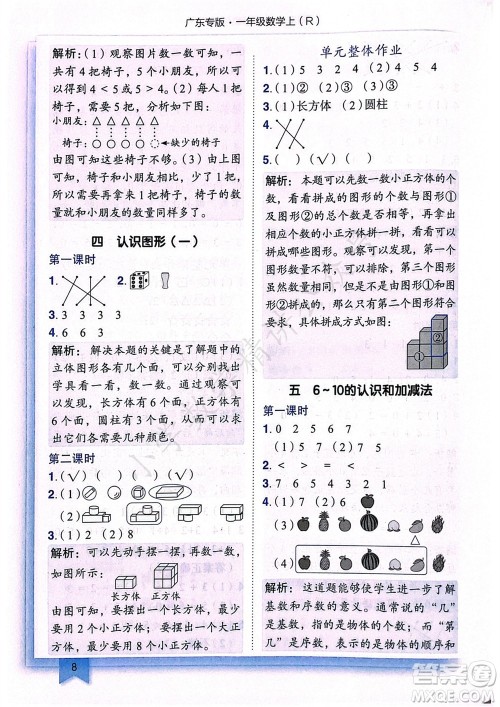 广东专版·一年级数学上(R)
解析:(1)观察图片数一数可知,一
共有 4 把椅子,5 个小朋友,所以得
到 4 < 5 或 5 > 4。(2)每人 1 把椅
子,画图如下:
小朋友:
椅子:
缺少的椅子
由图可知椅子不够。(3)由上图
可知,椅子的数量比小朋友少,椅子
和小朋友的数量不是同样多。
四 认识图形(一)
第一课时
1.
2.
3. 6 6 3
4. 1 3 6 3
解析:解决本题的关键是了解题中的
立体图形各有几个面,可以分别找出
学具看一看、数一数。由图可知,长
方体有 6 个面,正方体有 6 个面,所
以长方体和正方体都需要准备 6 种
颜色,圆柱有 3 个面,所以需要准备
3 种颜色。
第二课时
1.(√)( )( )( )
2.(1)
(2)
3.(1)2 (2)8
解析:可以先动手摆一摆,再数一数,
如图所示:
长方体
正方体
由图可知,要摆出一个大的长方体,
最少要用 2 个小正方体;要摆出一个
大的正方体,最少要用 8 个小正方体。
8
单元整体作业
1.(1)5 3 2 4 (2)4
2.(1)② (2)③ (3)①
3.(1)长方体 (2)圆柱
4.
5.( )(√)( )
解析:本题可以先数一数小正方体的个
数,看剩余图形的个数与图形①及图形②
的总个数是否相等,再拿出相应
个数的小正方体拼一拼,看是否可以
拼成哪些图形。观察可以发现,第一
个图形数量不符,可以排除,第三个图形
虽然数量相同,但是不能由图形①
和图形②拼成,而第二个图形是可以
拼成的,具体拼成方式如图:
①
②
五 6~10的认识和加减法
第一课时
1.(1)6 7 (2)5 7 (3)5 7
2.(√)( )(√)
3. 4 5 6 7
4.(1)7 (2)4 5
(3)
(4)
解析:这道题能使学生进一步了解
基数和序数的意义。通常说的“几”
是基数,指的是物体的个数;而“第
几”是序数,指的是物体的次序。